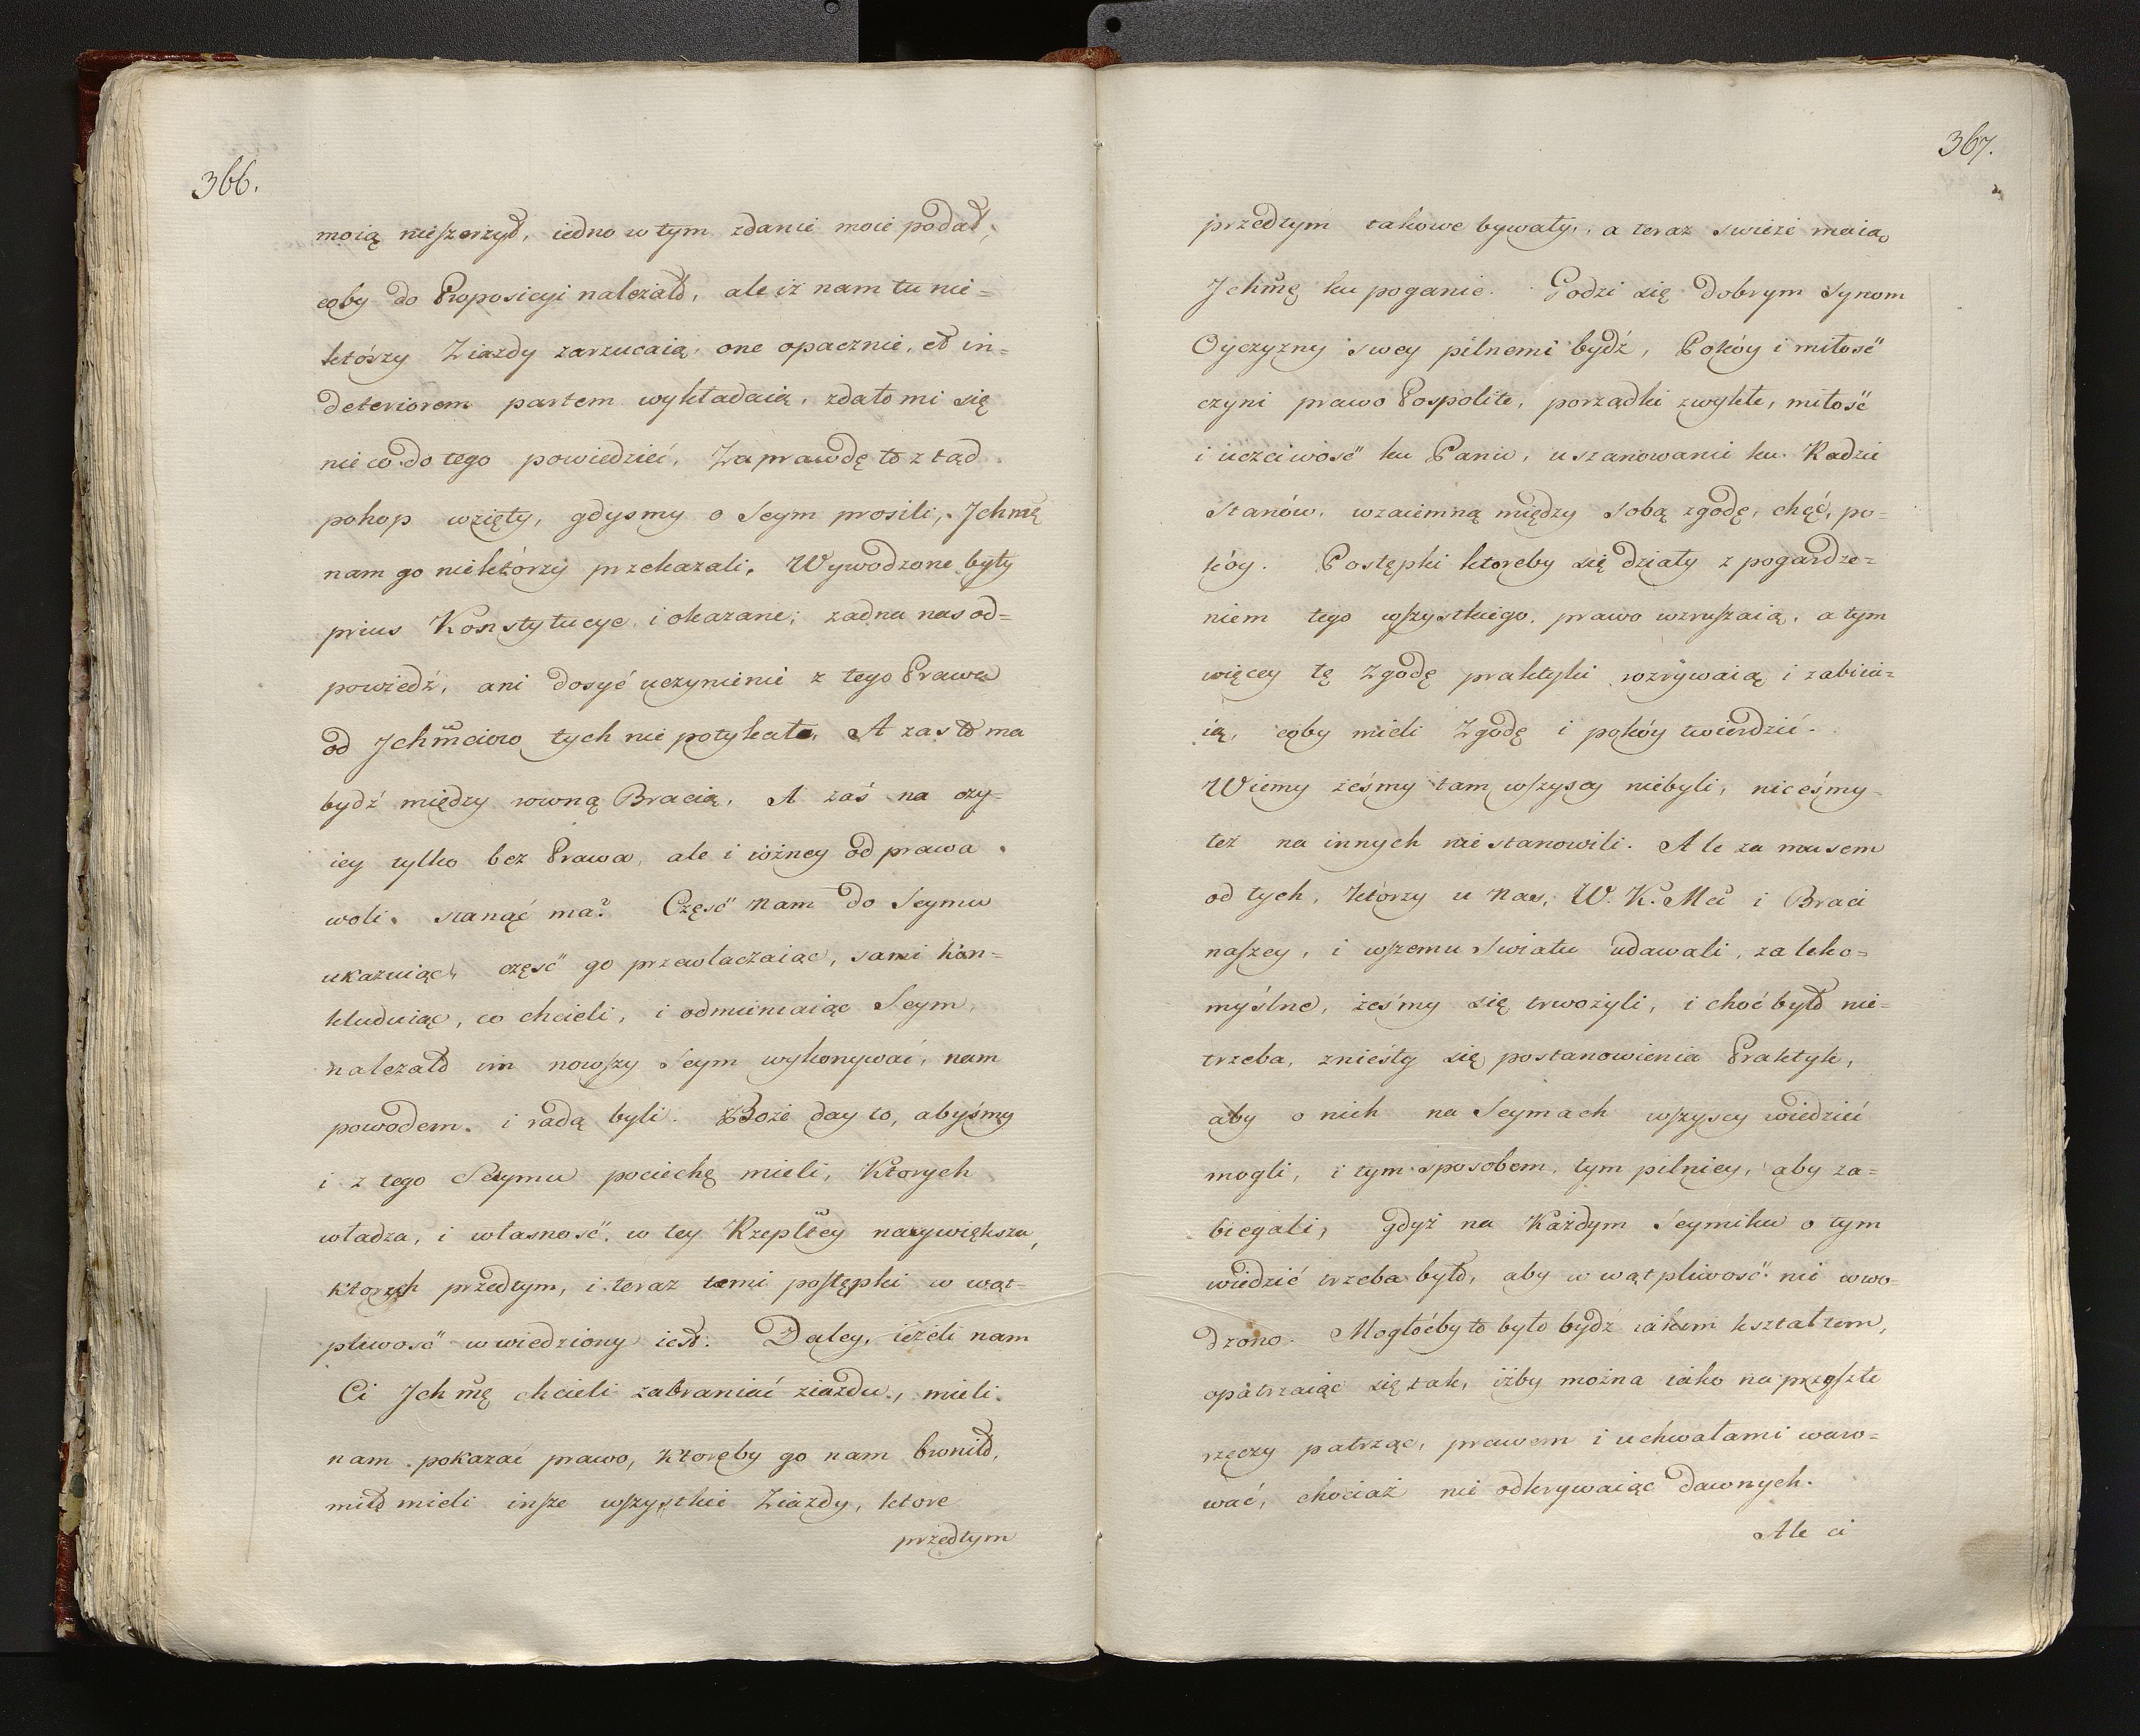 366.
moią nieszerzył, iedno w tym zdanie moie podał,
coby do Proposicyi należało, ale iż nam tu nie=
którzy Ziazdy zarzucaią, one opacznie, et in=
deteriorem partem wykładaią, zdało mi się
nieco do tego powiedzieć, Zaprawdę to z tąd
pohop wzięty, gdysmy o Seym prosili, Jchmę
nam go niektórzy przekazali. Wywodzone były
prius Konstytucye i okazane; zadna nas od=
powiedź, ani dosyć uczynienie z tego Prawa
od Jchmciow tych nie potykała. A zas to ma
bydź między rowną Bracią, A zaś na czy=
iey tylko bez Prawa, ale i rożney od prawa
woli. stanąć ma? Część nam do Seymu
ukazuiąc, część go przewłaczaiąc, sami kon=
kluduiąc, co chcieli, i odmieniaiąc Seym,
należało im nowszy Seym wykonywać, nam
powodem. i radą byli. Boże day to, abyśmy
i z tego Seymu pociechę mieli, Ktorych
władza, i własność, w tey Rzepltey naywiększa,
ktorych przedtym, i teraz temi postępki w wąt=
pliwość wwiedziony iest. Daley, ieżeli nam
Ci Jchmę chcieli zabraniać ziazdu, mieli
nam pokazać prawo, ktoreby go nam broniło,
mieli insze wszystkie Ziazdy, ktore
przedtym
367.
przedtym takowe bywały, a teraz swieże maią
Jchmę ku poganie. Godzi się dobrym synom
Oyczyzny swey pilnemi bydź, Pokóy i miłość
czyni prawo Pospolite, porządki zwykłe, miłość
i uczciwość ku Panu, uszanowanie ku Radzie
Stanów, wzaiemną między sobą zgodę, chęć, po=
kóy. Postępki ktoreby się działy z pogardze=
niem tego wszystkiego, prawo wzruszaią, a tym
więcey tę Zgodę praktyki rozrywaią i zabiia=
ią, coby mieli Zgodę i pokóy twierdzić.
Wiemy żeśmy tam wszyscy niebyli, niceśmy
też na innych nie stanowili. Ale za musem
od tych, którzy u Nas, W. K. Mci i Braci
naszey, i wszemu Swiatu udawali, za leko=
myślne, żeśmy się trwożyli, i choć było nie=
trzeba, znieśły się postanowienia Praktyk,
aby o nich na Seymach wszyscy wiedzieć
mogli, i tym sposobem, tym pilniey, aby za=
biegali, gdyż na Każdym Seymiku o tym
wiedzić trzeba było, aby w wątpliwość nie wwo=
dzono. Mogłoćby to było bydź iakiem kształtem,
opatrzaiąc się tak, iżby można iako na przeszłe
rzęczy patrząc, prawem i uchwałami waro=
wać, chociaż nie odkrywaiąc dawnych.
Ale ci